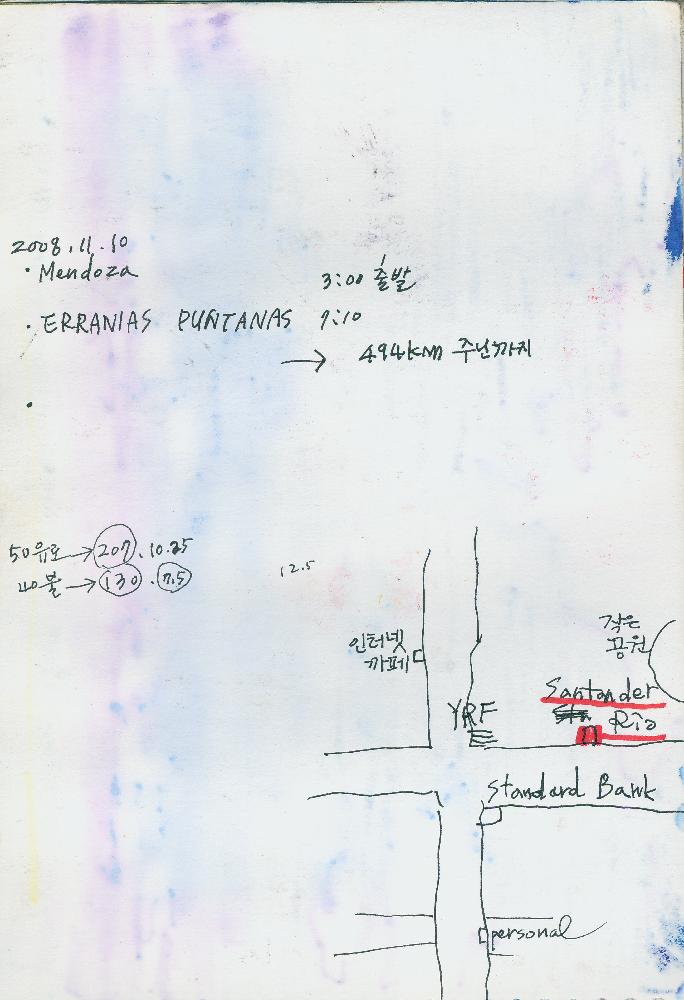 2008.11.10
· Mendoza 3:00 출발
· ERRANIAS PUNTANAS 7:10
→ 494km 주난까지
·
50유로→207.10.25
40불→130.7.5
12.5
인터넷
까페
작은
공원
Santander
Rio
YRF
Standard Bank
personal